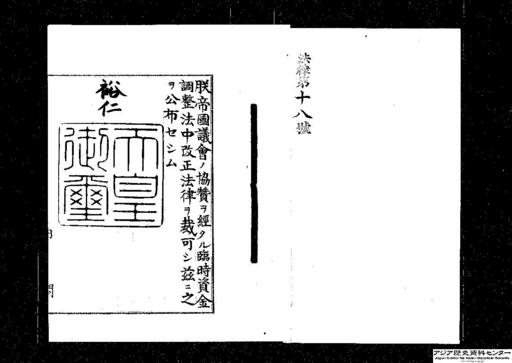 法律第十八號
朕帝國議會ノ協贊ヲ經タル臨時資金
調整法中改正法律ヲ裁可シ茲ニ之
ヲ公布セシム
裕仁
天皇
御璽
アジア歴史資料センター
Japan Center for Asian Historical Records